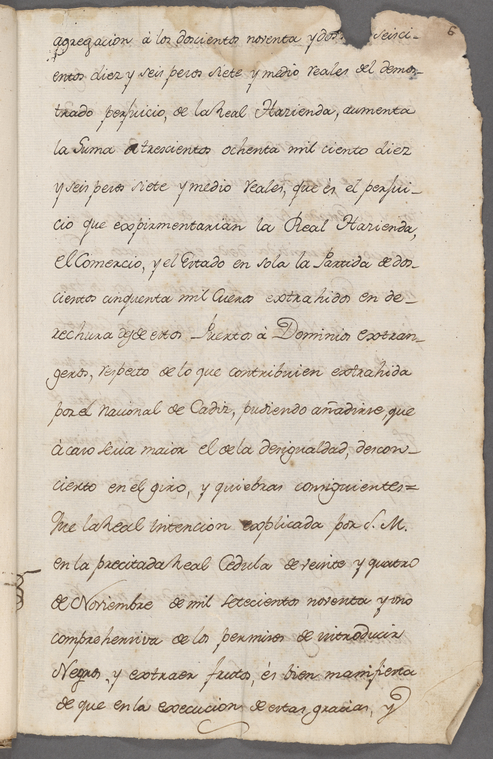 6
agregacion à los doscientos noventa y dos seisci-
entos diez y seis pesos siete y medio reales del demos-
trado perjuicio, de la Real Hazienda, aumenta
la Suma a trescientos ochenta mil ciento diez
y seis pesos siete y medio reales, que es el perjui-
cio que expirmentarian la Real Hazienda,
el Comercio, y el Estado en sola la Partida de dos-
cientos cinquenta mil Cueros extrahidos en de-
rechura desde estos Puertos à Dominios extran-
geros, respecto de lo que contribuien extrahida
por el nacional de Cadiz, pudiendo añadirse, que
à caso seria maior el de la desigualdad, descon-
cierto en el giro, y quiebras consiguientes=
Que la Real intencion explicada por S. M.
en la precitada Real Cedula de veinte y quatro
de Noviembre de mil setecientos noventa y uno
comprehensiva de los permisos de introducir
Negros, y extraer frutos, es bien manifiesta
de que en la execucion de estas gracias, y